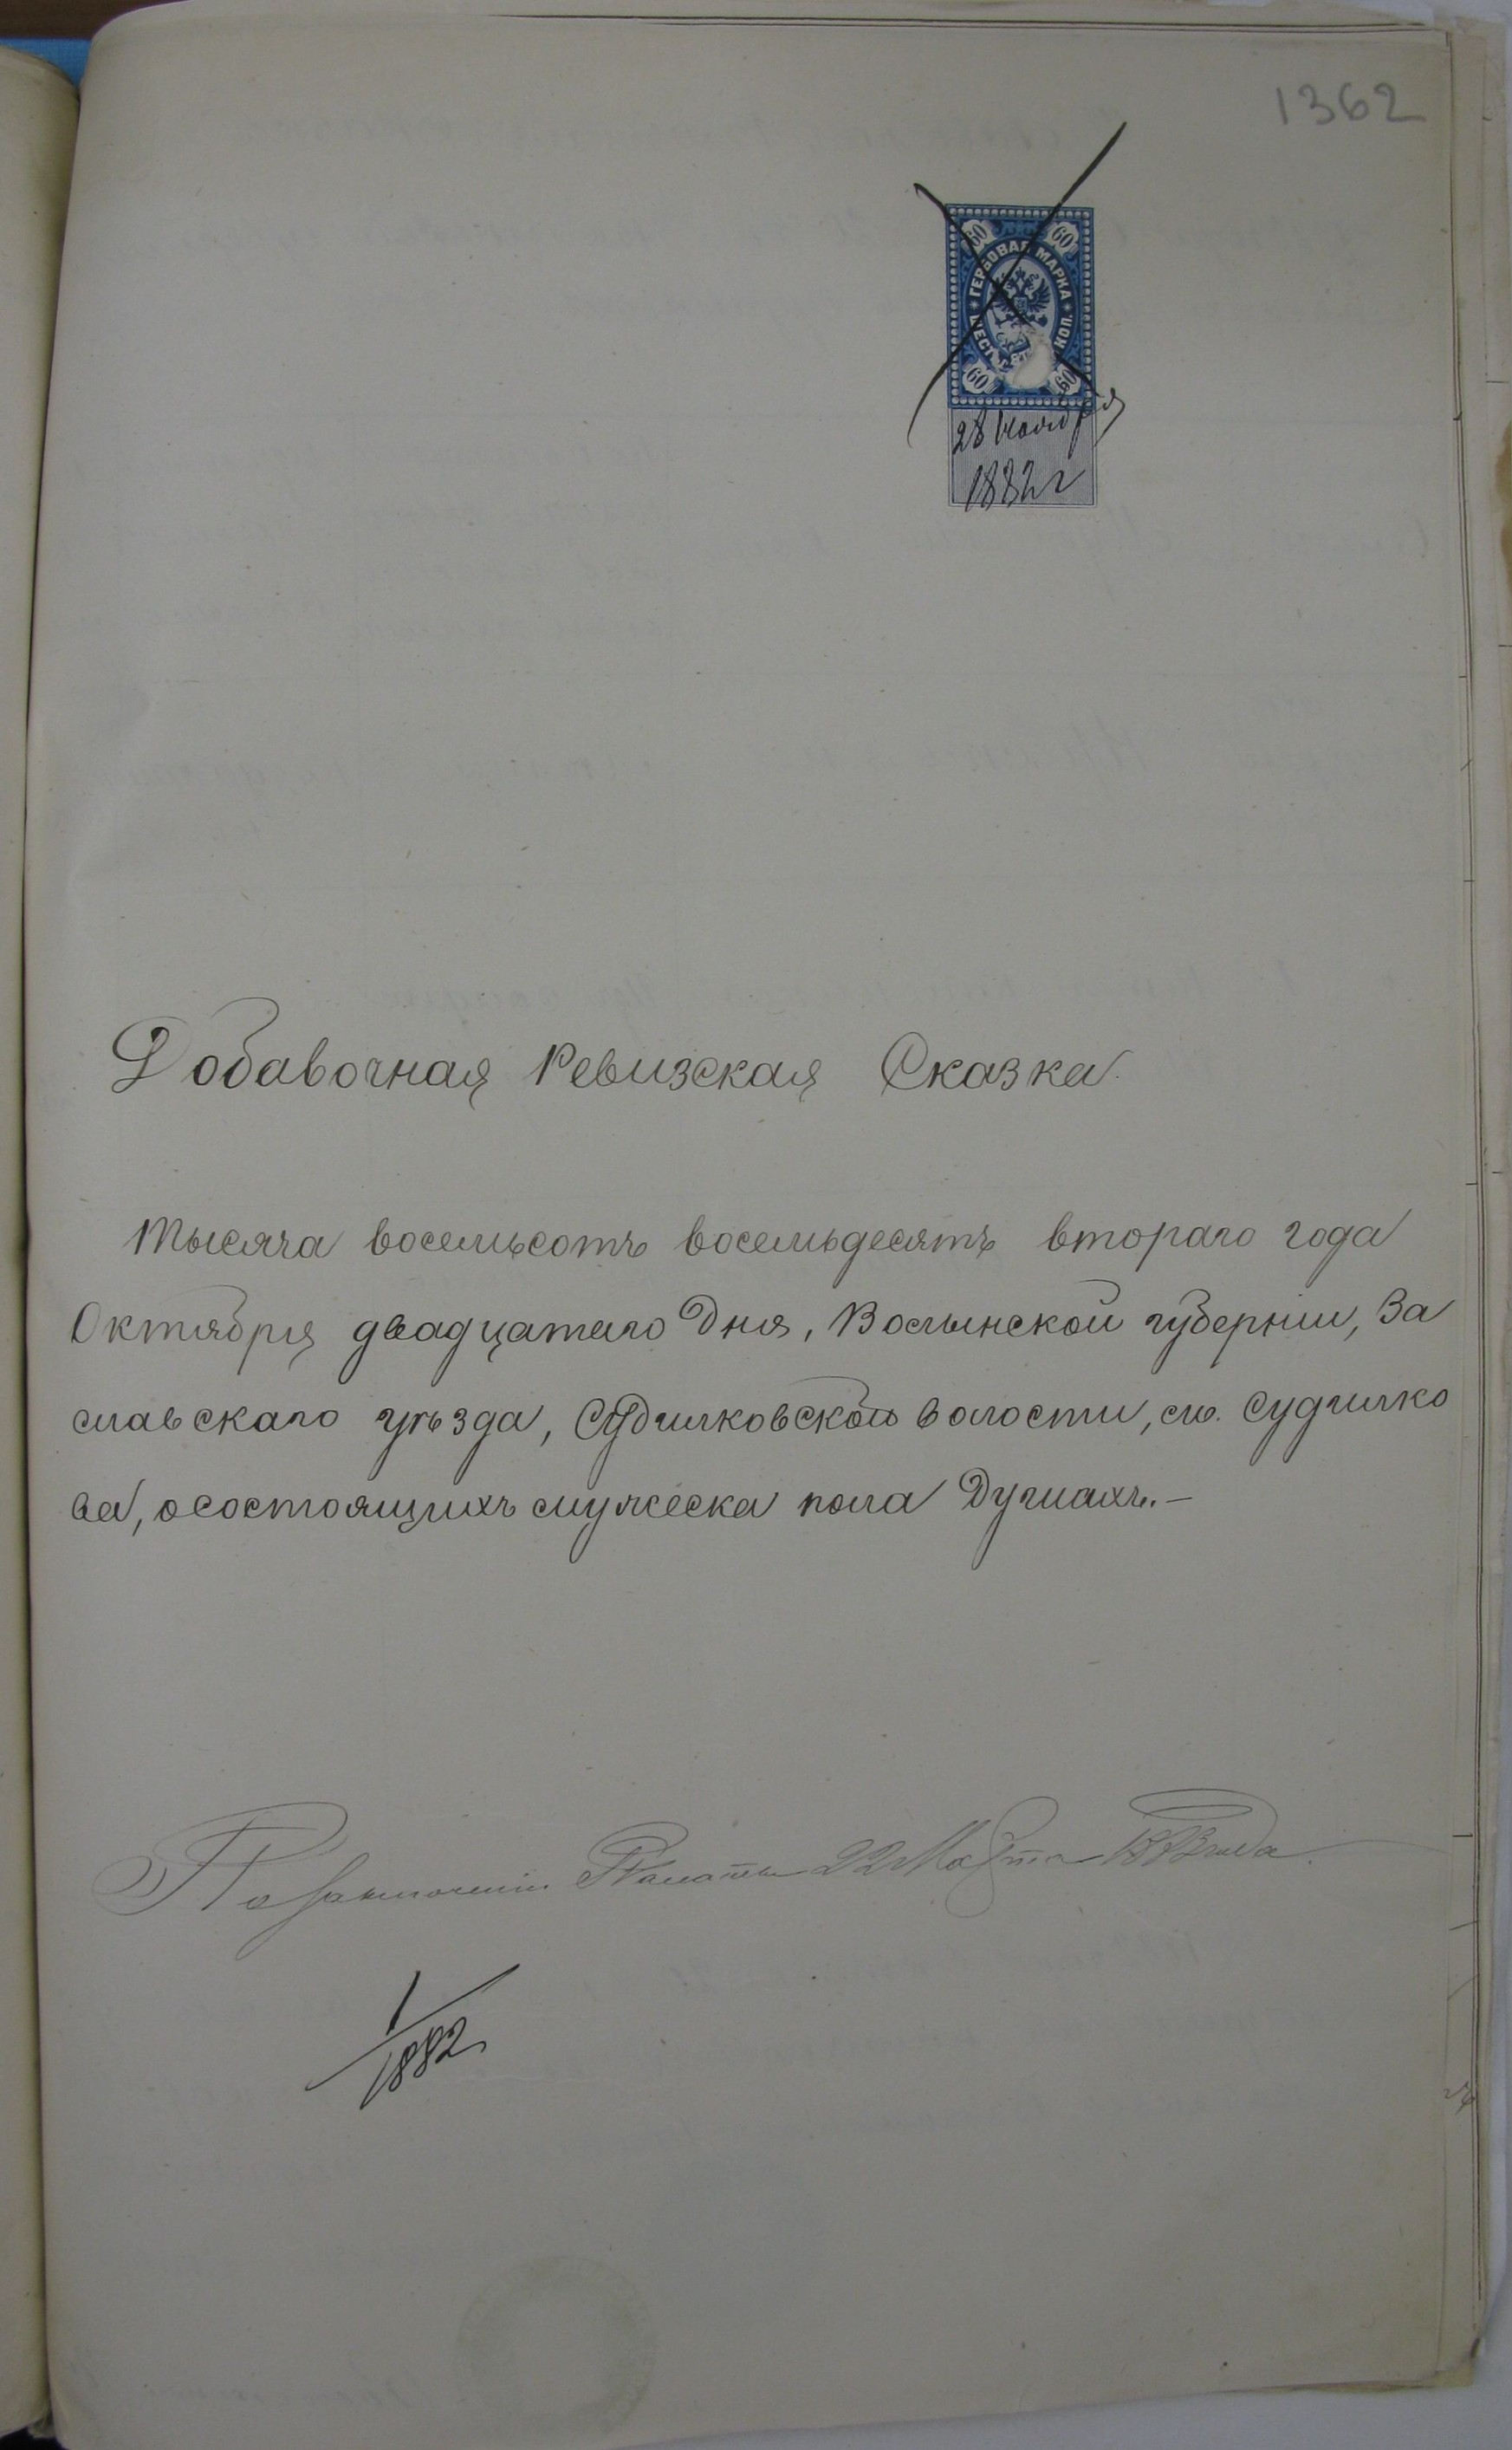 1362
60 60
ГЕРБОВАЯ МАРКА
КОП.
60 60
28 Ноября
1882 г
Добавочная Ревизская Сказка.
Тысяча восемьсотъ восемьдесятъ втораго года
Октября двадцатаго Дня, Волынской губерніи, За
славскаго уѣзда, Судилковской волости, м. Судилко
ва, о состоящихъ мужеска пола Душахъ.—
По заключенію Палаты 22 Марта 1883 года.
1/1882